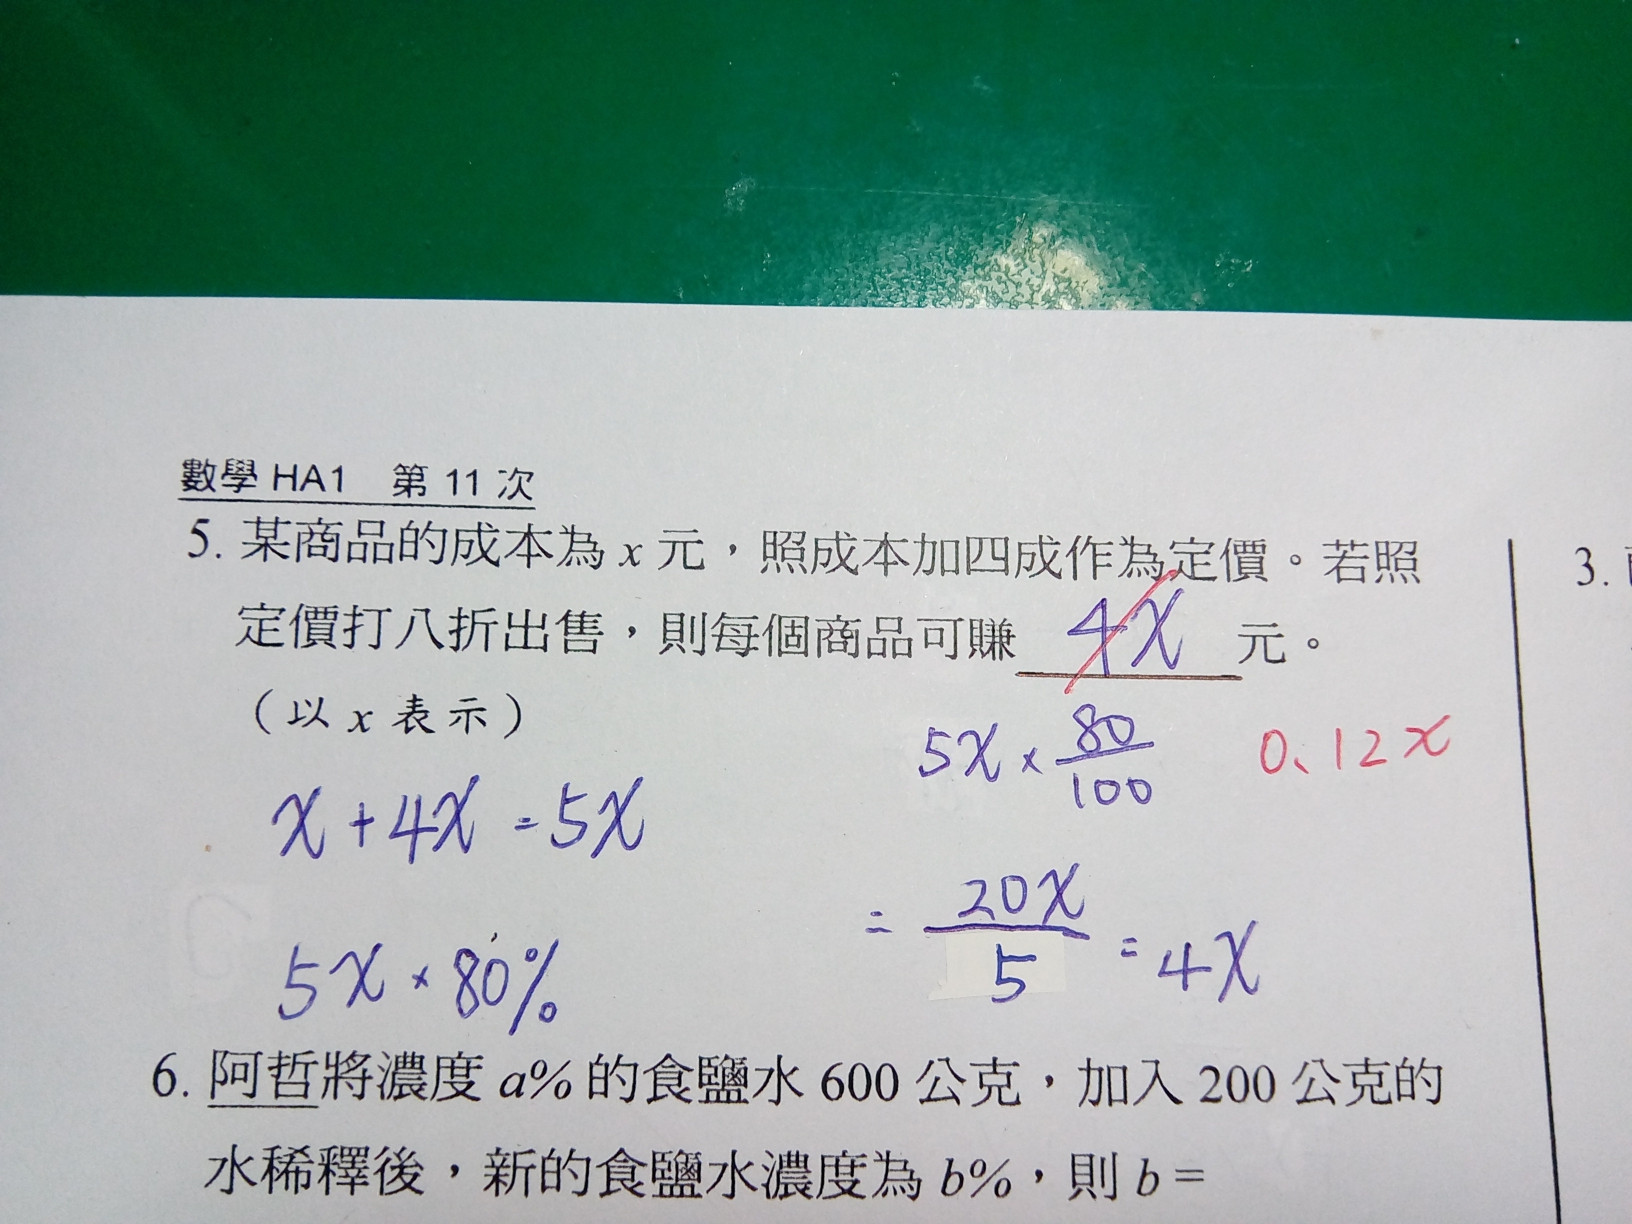 數學 HA1 第 11 次
5. 某商品的成本為 x 元，照成本加四成作為定價。若照
定價打八折出售，則每個商品可賺 4x 元。
（以 x 表示）
5x × 80/100
0.12x
x + 4x = 5x
= 20x/5 = 4x
5x × 80%
6. 阿哲將濃度 a% 的食鹽水 600 公克，加入 200 公克的
水稀釋後，新的食鹽水濃度為 b%，則 b =
3.